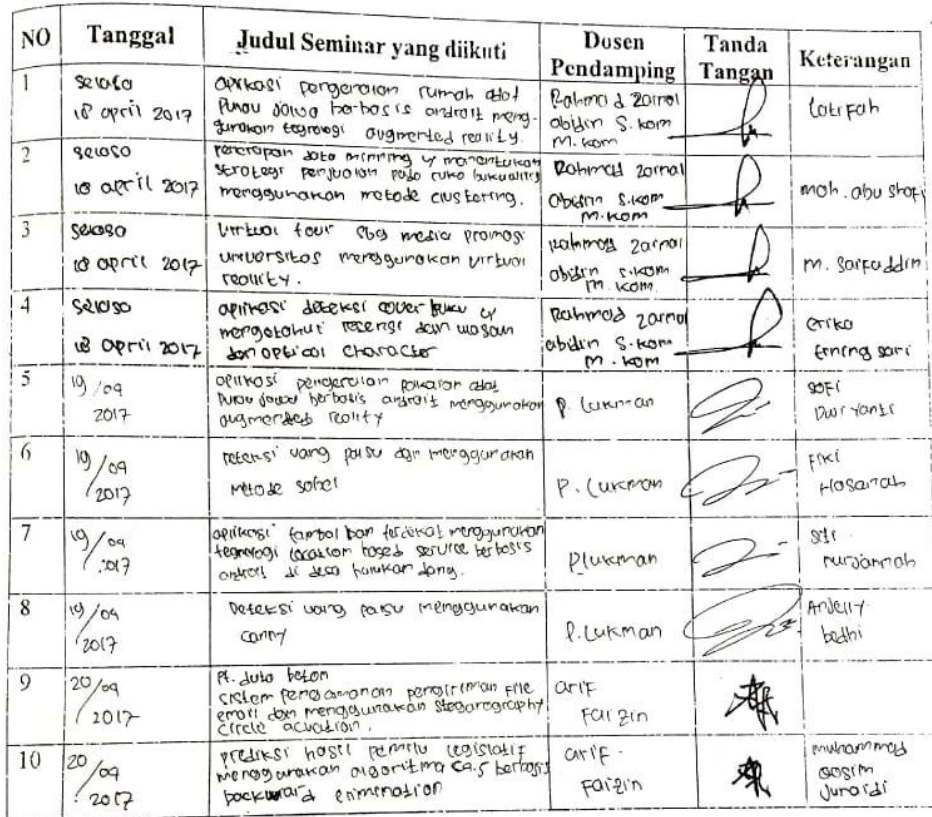 NO Tanggal Judul Seminar yang diikuti Dosen Pendamping Tanda Tangan Keterangan
1
selasa
18 april 2017
aplikasi pengenalan rumah adat
Pulau Jawa berbasis android meng-
gunakan tegnologi augmented reality.
Rahmad Zainal
abidin S.kom
M.kom
Latifah
2
selasa
18 april 2017
penerapan data minning u/ menentukan
strategi penjualan pada
menggunakan metode clustering.
Rahmad Zainal
abidin S.kom
M.kom
moh. abu shofi
3
selasa
18 april 2017
virtual tour sbg media promosi
universitas menggunakan virtual
reality.
Rahmad Zainal
abidin S.kom
M.kom
m. saifuddin
4
selasa
18 april 2017
aplikasi deteksi cover buku u/
mengetahui resensi dan
dan optical character
Rahmad Zainal
abidin S.kom
M.kom
erika
Erning sari
5
19/04
2017
aplikasi pengenalan pakaian adat
Pulau Jawa berbasis android menggunakan
augmented reality
P. Lukman
sofi
Dwi Yanti
6
19/04
2017
Deteksi uang palsu dgn menggunakan
metode sobel
P. Lukman
Fiki
Hasanah
7
19/04
2017
aplikasi tambal ban terdekat menggunakan
tegnologi location based service berbasis
android di desa
P. Lukman
siti
nurjannah
8
19/04
2017
Deteksi uang palsu menggunakan
canny
P. Lukman
Andelly
bedhi
9
20/04
2017
Pt. duta beton
sistem pengamanan pengiriman file
email dgn menggunakan steganography
circle
arif
Faizin
10
20/04
2017
prediksi hasil pemilu legislatif
menggunakan algoritma C4.5 berbasis
backward elimination
arif
Faizin
muhammad
qosim
Junaidi